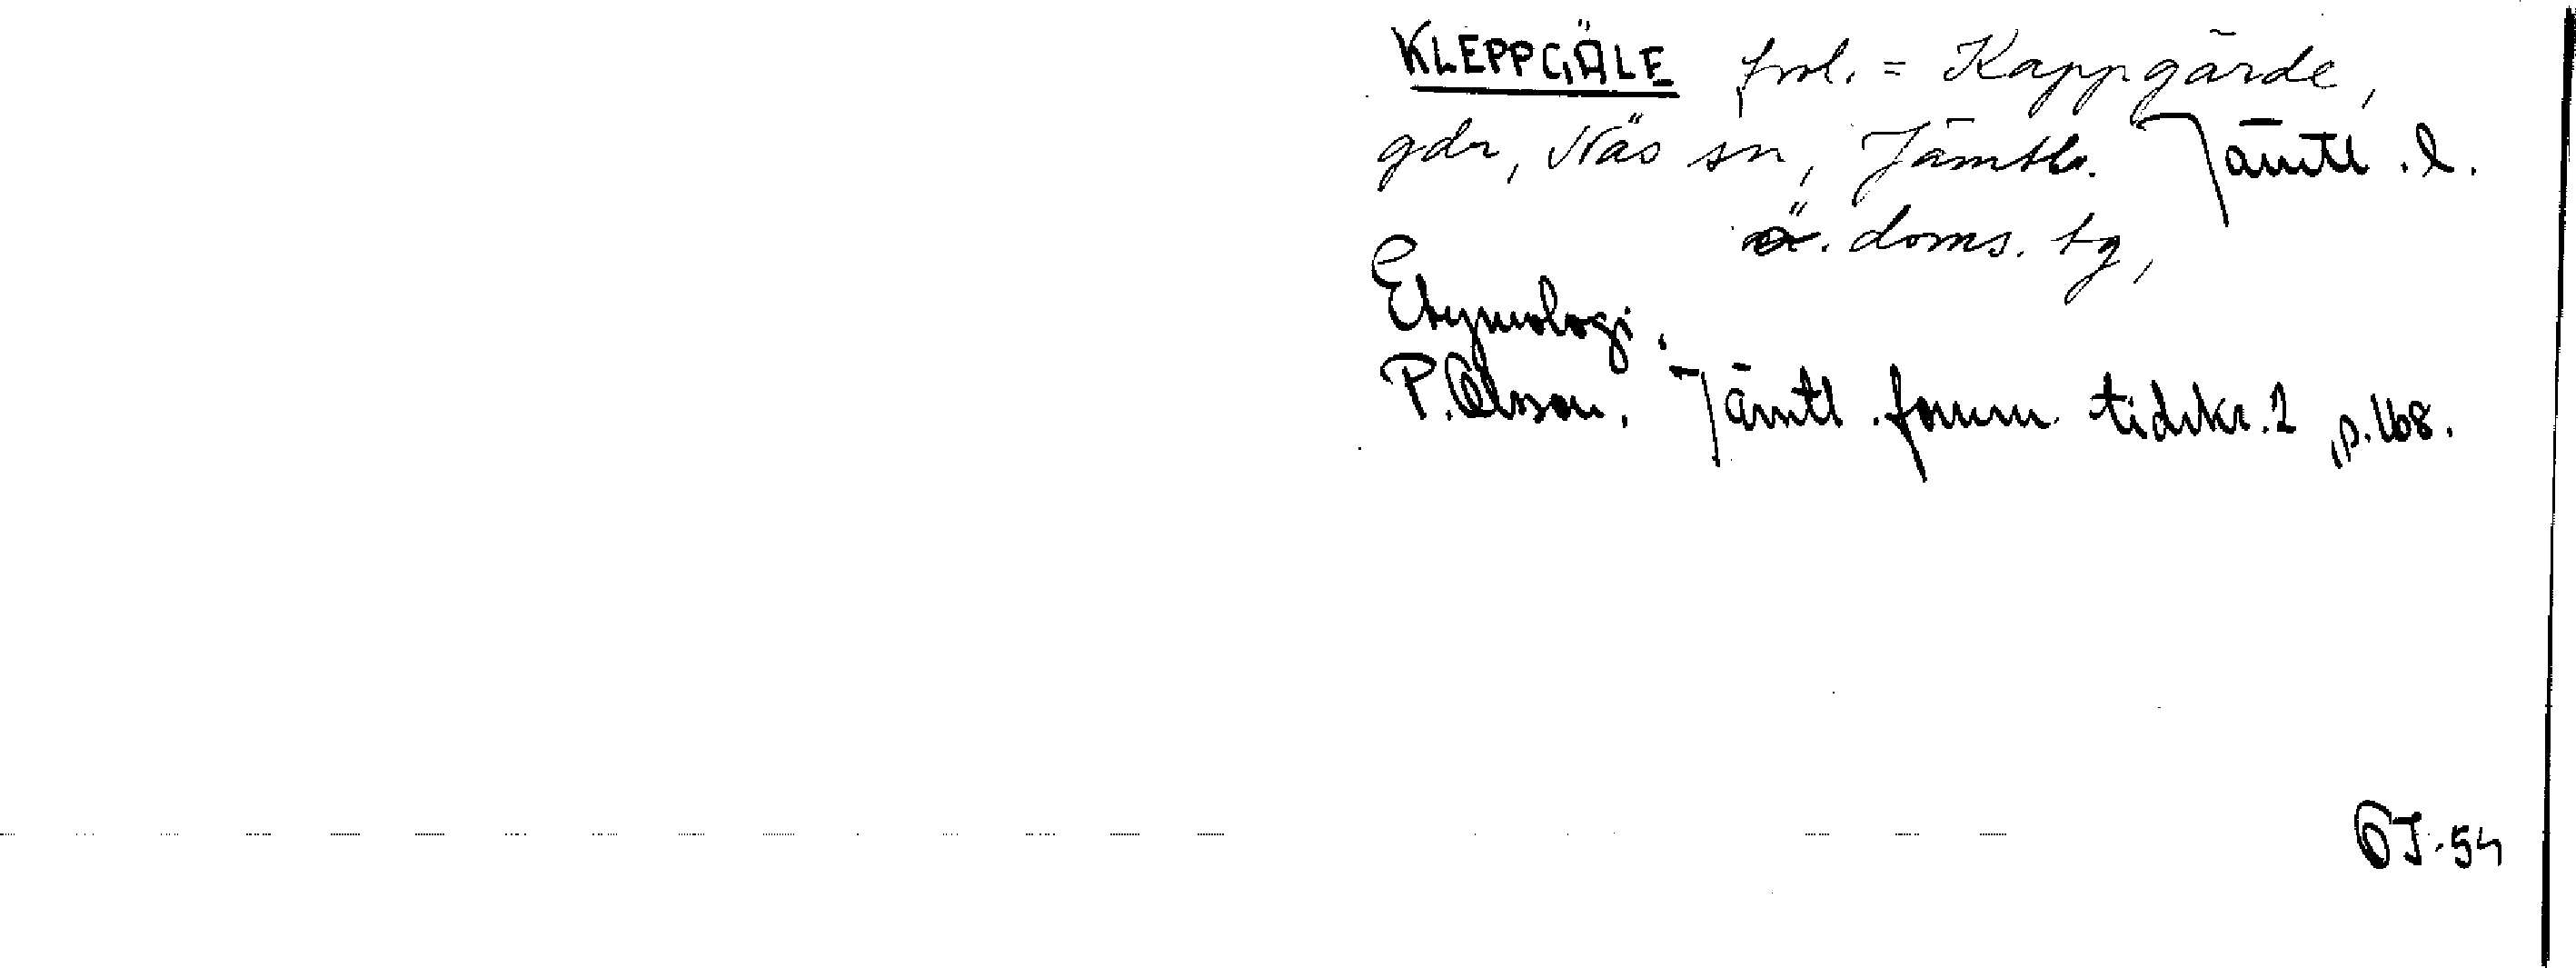 KLEPPGÄLE frnl. = Kappgärde,
gdr, Näs sn, Jämtls. Jämtl. l.
ö. doms. tg,
Etymologi.
P. Olsson. Jämtl. fornm. tidskr. 2, p. 168.
OJ. 54